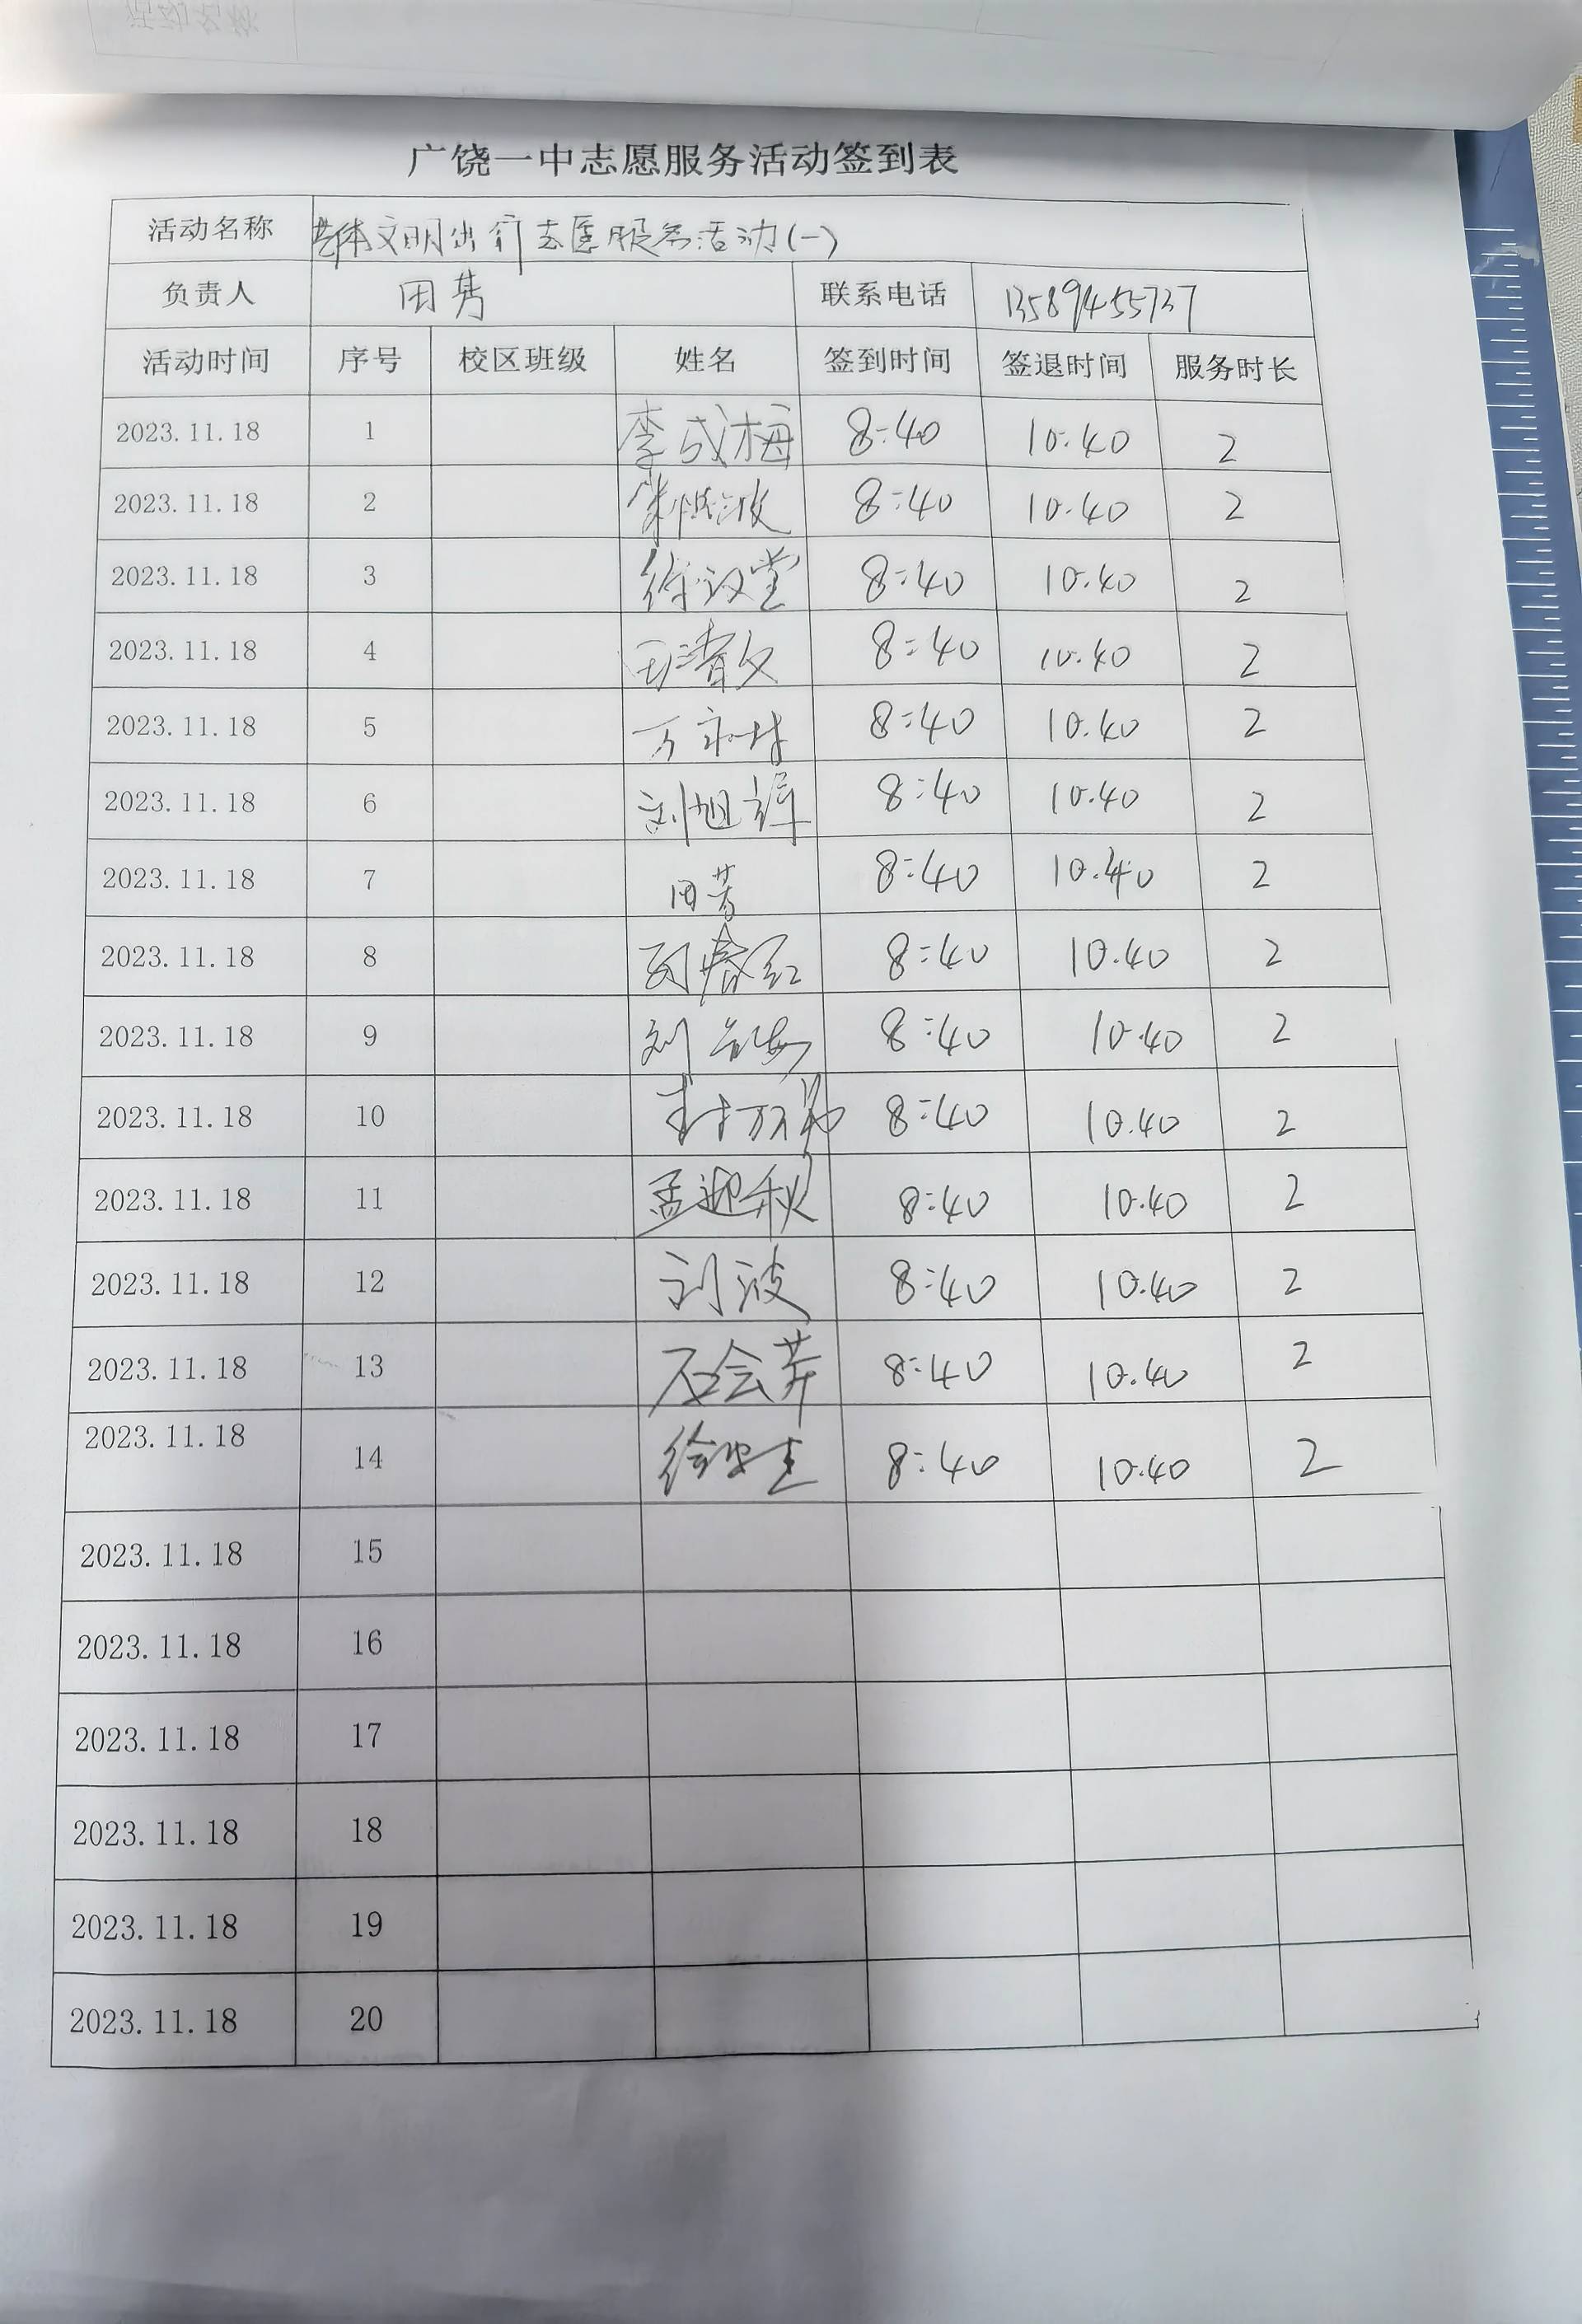 广饶一中志愿服务活动签到表
活动名称 文明出行志愿服务活动(一)
负责人 田 联系电话 13589455737
活动时间 序号 校区班级 姓名 签到时间 签退时间 服务时长
2023.11.18 1 李成梅 8:40 10:40 2
2023.11.18 2 8:40 10.40 2
2023.11.18 3 徐汉堂 8:40 10.40 2
2023.11.18 4 8:40 10.40 2
2023.11.18 5 8:40 10.40 2
2023.11.18 6 刘旭 8:40 10.40 2
2023.11.18 7 田芳 8:40 10.40 2
2023.11.18 8 8:40 10.40 2
2023.11.18 9 刘 8:40 10.40 2
2023.11.18 10 8:40 10.40 2
2023.11.18 11 孟迎秋 8:40 10.40 2
2023.11.18 12 刘波 8:40 10.40 2
2023.11.18 13 石会 8:40 10.40 2
2023.11.18 14 徐 8:40 10.40 2
2023.11.18 15
2023.11.18 16
2023.11.18 17
2023.11.18 18
2023.11.18 19
2023.11.18 20